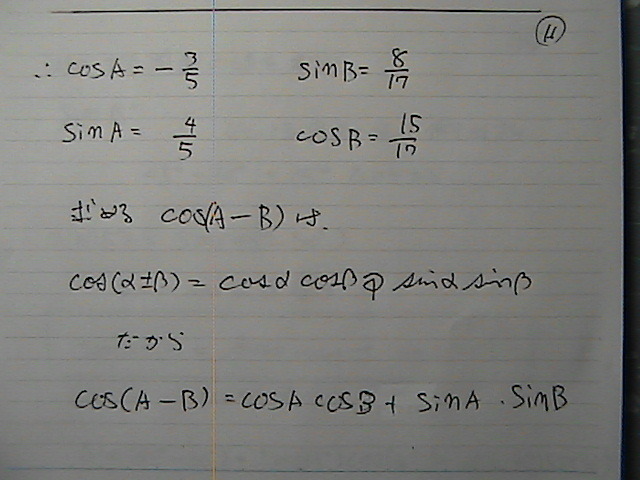 ⑭
∴ cosA = -3/5 sinB = 8/17
sinA = 4/5 cosB = 15/17
cos(A-B)は、
cos(α±β) = cosα cosβ ∓ sinα sinβ
だから
cos(A-B) = cosA cosB + sinA・sinB